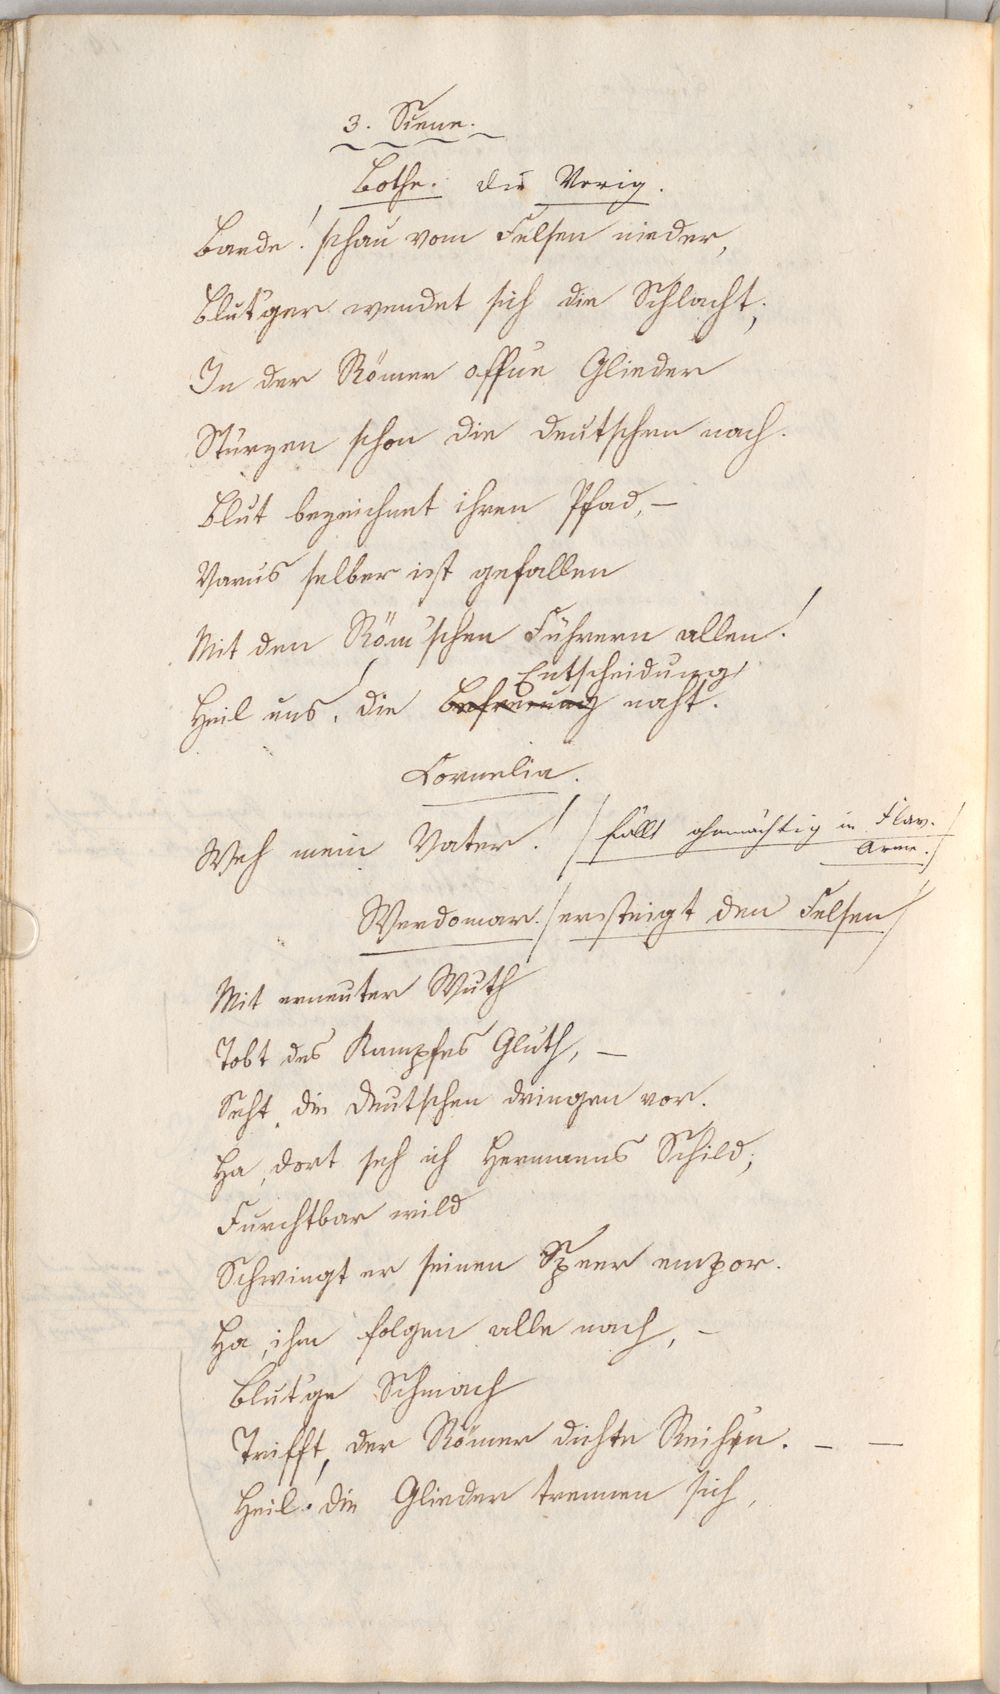 3. Scene.
Bothe. die Vorig.
Barde! schau vom Felsen nieder,
Blut'ger wendet sich die Schlacht;
In der Römer offne Glieder
Stürzen schon die Deutschen nach.
Blut bezeichnet ihren Pfad, –
Varus selber ist gefallen
Mit den Röm'schen Führern allen!
Entscheidung
Heil uns! die Befreiung naht.
Cornelia.
Weh mein Vater! / fällt ohnmächtig in Flav.
Arme. /
Werdomar. / ersteigt den Felsen /
Mit erneuter Wuth
Tobt des Kampfes Gluth, –
Seht, die Deutschen dringen vor.
Ha, dort seh ich Hermanns Schild;
Furchtbar wild
Schwingt er seinen Speer empor.
Ha, ihm folgen alle nach, –
Blut'ge Schmach
Trifft, der Römer dichte Reihen. – –
Heil! die Glieder trennen sich,